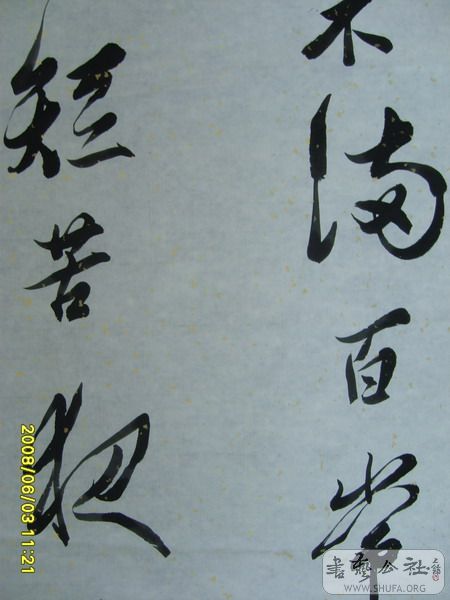 不滿百常
短苦夜
2008/06/03 11:21
書藝公社
WWW.SHUFA.ORG